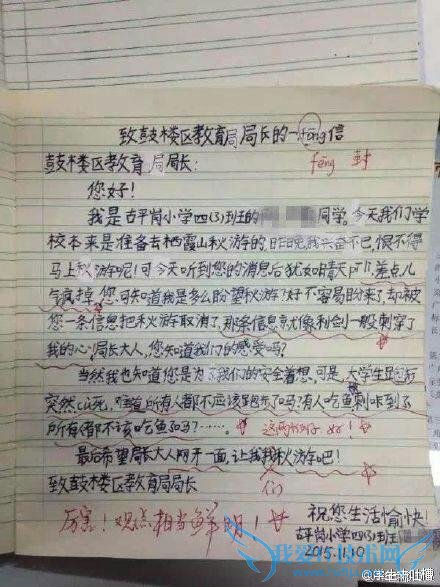 致鼓楼区教育局局长的一fēng信
fēng 封
鼓楼区教育局局长:
您好!
我是古平岗小学四(3)班的 同学。今天我们学
校本来是准备去栖霞山秋游的,昨晚我兴奋不已,恨不得
马上秋游呢!可今天听到您的消息后犹如晴天pī lì,差点儿
气疯掉。您可知道我是多么盼望秋游?好不容易盼来了,却被
您一条信息把秋游取消了,那条信息就像利剑一般刺穿了
我的心,局长大人,您知道我们的感受吗?
当然我也知道您是为了我们的安全着想,可是,大学生跑步
突然cù死,难道所有人都不应该跑步了吗?有人吃鱼刺卡到了,
所有人都不该吃鱼了吗?……。这两句写得好!
最后希望局长大人网开一面,让我我秋游吧!
们
致鼓楼区教育局局长
祝您生活愉快!
厉害!观点相当鲜明!
古平岗小学四(3)班
2015.11.10
@学生帮吐槽